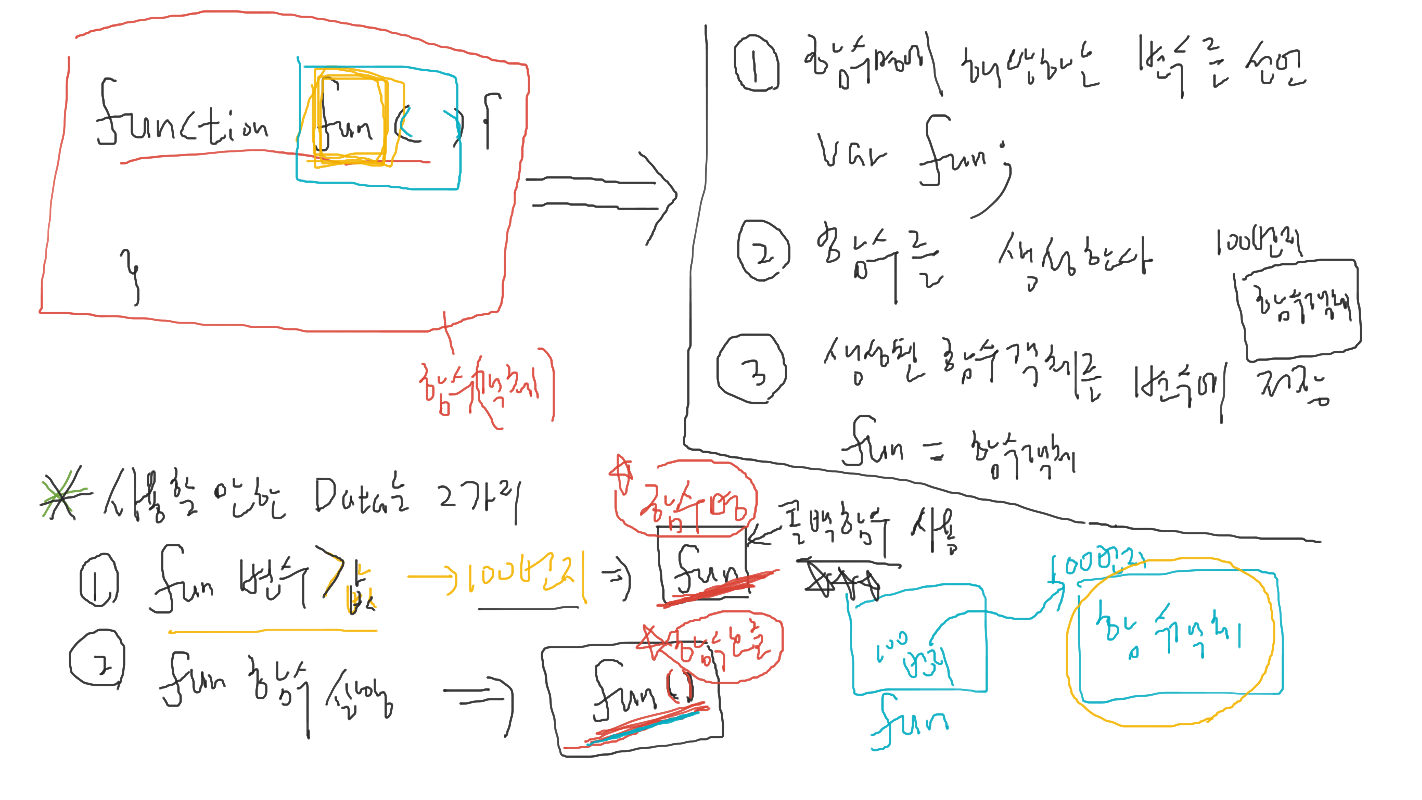 function fun ( ) {
}
함수(객체)
① 함수명에 해당하는 변수를 선언
var fun;
② 함수를 생성한다
100번지
함수객체
③ 생성된 함수객체를 변수에 저장
fun = 함수객체
※ 사용할 Data는 2가지
① fun 변수 → 100번지 ⇒ fun
함수명
콜백함수 사용
② fun 함수 실행 ⇒ fun()
함수호출
100번지
fun
100번지
함수객체